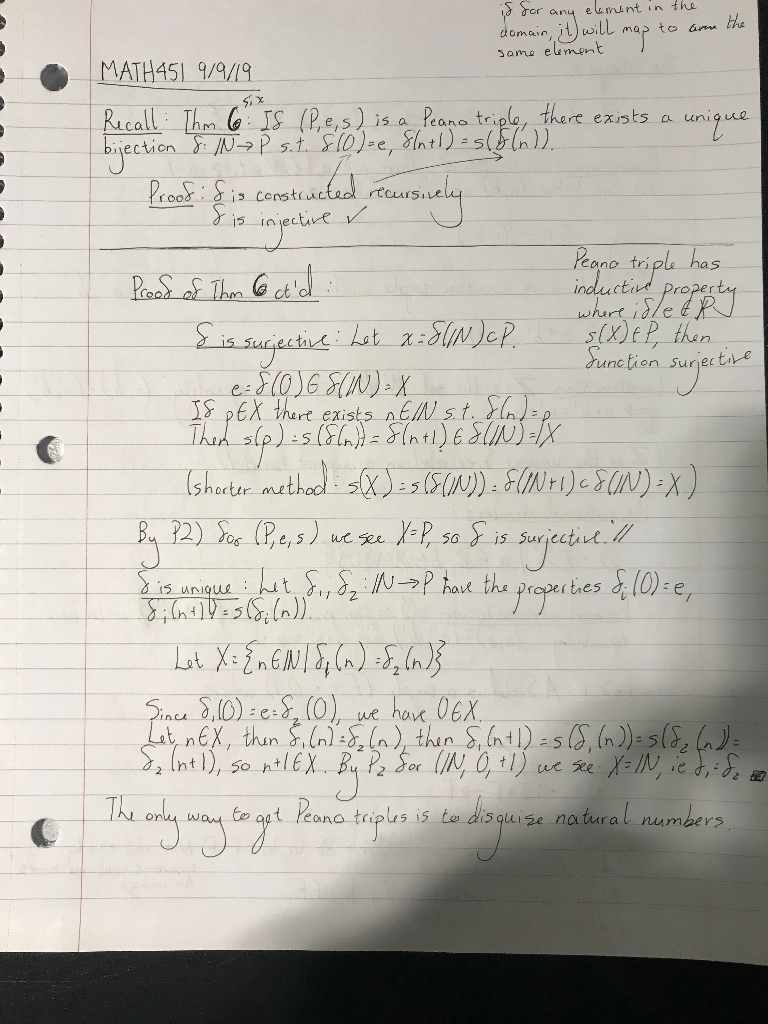 if for any element in the
domain, it will map to the
same element
MATH451 9/9/19
six
Recall: Thm 6: If (P,e,s) is a Peano triple, there exists a unique
bijection f: ℕ→P s.t. f(0)=e, f(n+1)=s(f(n)).
Proof: f is constructed recursively
f is injective ✓
Peano triple has
inductive property
where if e ∉
s(X)∈P, then
function surjective
Proof of Thm 6 ct'd:
f is surjective: Let x=f(ℕ)⊂P.
e=f(0)∈f(ℕ)=X
If p∈X there exists n∈ℕ s.t. f(n)=p
Then s(p)=s(f(n))=f(n+1)∈f(ℕ)=X
(shorter method: s(X)=s(f(ℕ))=f(ℕ+1)⊂f(ℕ)=X)
By P2) for (P,e,s) we see X=P, so f is surjective.//
f is unique: Let f₁, f₂:ℕ→P have the properties fᵢ(0)=e,
fᵢ(n+1)=s(fᵢ(n)).
Let X={n∈ℕ|f₁(n)=f₂(n)}
Since f₁(0)=e=f₂(0), we have 0∈X.
Let n∈X, then f₁(n)=f₂(n), then f₁(n+1)=s(f₁(n))=s(f₂(n))=
f₂(n+1), so n+1∈X. By P₂ for (ℕ,0,+1) we see X=ℕ, ie f₁=f₂
The only way to get Peano triples is to disguise natural numbers.